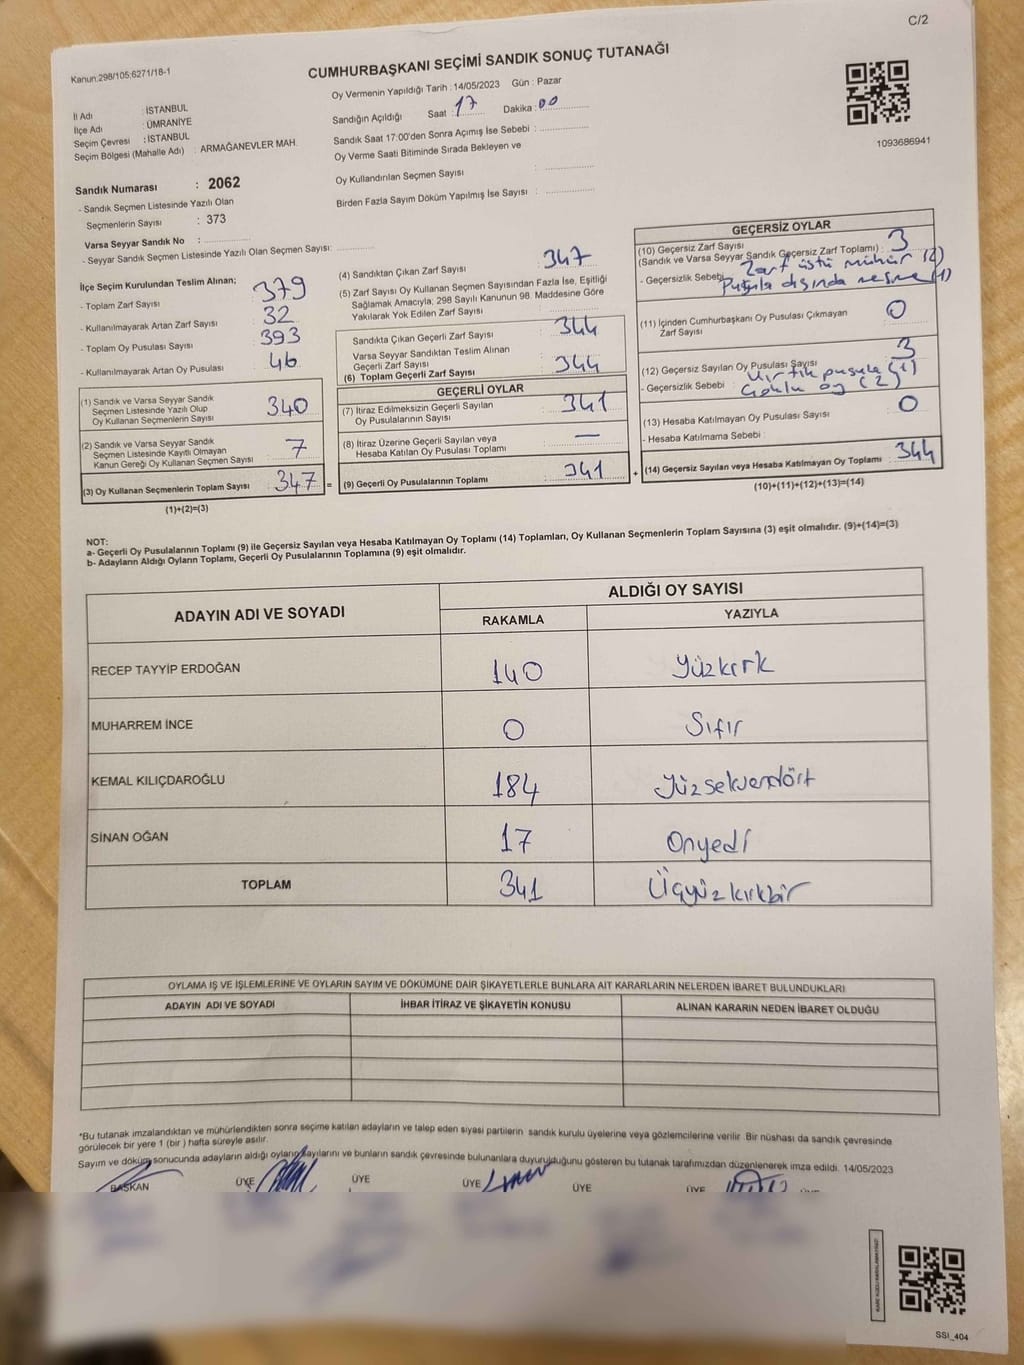 C/2
Kanun:298/105;6271/18-1
CUMHURBAŞKANI SEÇİMİ SANDIK SONUÇ TUTANAĞI
İl Adı : İSTANBUL
İlçe Adı : ÜMRANİYE
Seçim Çevresi : İSTANBUL
Seçim Bölgesi (Mahalle Adı) : ARMAĞANEVLER MAH.
Sandık Numarası : 2062
- Sandık Seçmen Listesinde Yazılı Olan
Seçmenlerin Sayısı : 373
Varsa Seyyar Sandık No :
- Seyyar Sandık Seçmen Listesinde Yazılı Olan Seçmen Sayısı:
Oy Vermenin Yapıldığı Tarih : 14/05/2023 Gün : Pazar
Sandığın Açıldığı Saat : 17 Dakika : 00
Sandık Saat 17:00'den Sonra Açımış İse Sebebi :
Oy Verme Saati Bitiminde Sırada Bekleyen ve
Oy Kullandırılan Seçmen Sayısı :
Birden Fazla Sayım Döküm Yapılmış İse Sayısı :
1093686941
İlçe Seçim Kurulundan Teslim Alınan;
- Toplam Zarf Sayısı : 379
- Kullanılmayarak Artan Zarf Sayısı : 32
- Toplam Oy Pusulası Sayısı : 393
- Kullanılmayarak Artan Oy Pusulası : 46
(1) Sandık ve Varsa Seyyar Sandık
Seçmen Listesinde Yazılı Olup
Oy Kullanan Seçmenlerin Sayısı : 340
(2) Sandık ve Varsa Seyyar Sandık
Seçmen Listesinde Kayıtlı Olmayan
Kanun Gereği Oy Kullanan Seçmen Sayısı : 7
(3) Oy Kullanan Seçmenlerin Toplam Sayısı : 347 =
(1)+(2)=(3)
(4) Sandıktan Çıkan Zarf Sayısı : 347
(5) Zarf Sayısı Oy Kullanan Seçmen Sayısından Fazla İse, Eşitliği
Sağlamak Amacıyla; 298 Sayılı Kanunun 98. Maddesine Göre
Yakılarak Yok Edilen Zarf Sayısı :
Sandıkta Çıkan Geçerli Zarf Sayısı : 344
Varsa Seyyar Sandıktan Teslim Alınan
Geçerli Zarf Sayısı :
(6) Toplam Geçerli Zarf Sayısı : 344
GEÇERLİ OYLAR
(7) İtiraz Edilmeksizin Geçerli Sayılan
Oy Pusulalarının Sayısı : 341
(8) İtiraz Üzerine Geçerli Sayılan veya
Hesaba Katılan Oy Pusulası Toplamı : —
(9) Geçerli Oy Pusulalarının Toplamı : 341 +
GEÇERSİZ OYLAR
(10) Geçersiz Zarf Sayısı
(Sandık ve Varsa Seyyar Sandık Geçersiz Zarf Toplamı) : 3
- Geçersizlik Sebebi : Zarf üstü mühür (2)
Pusula dışında nesne (1)
(11) İçinden Cumhurbaşkanı Oy Pusulası Çıkmayan
Zarf Sayısı : 0
(12) Geçersiz Sayılan Oy Pusulası Sayısı : 3
- Geçersizlik Sebebi : Yırtık pusula (1)
Çoklu oy (2)
(13) Hesaba Katılmayan Oy Pusulası Sayısı : 0
- Hesaba Katılmama Sebebi :
(14) Geçersiz Sayılan veya Hesaba Katılmayan Oy Toplamı : 344
(10)+(11)+(12)+(13)=(14)
NOT:
a- Geçerli Oy Pusulalarının Toplamı (9) ile Geçersiz Sayılan veya Hesaba Katılmayan Oy Toplamı (14) Toplamları, Oy Kullanan Seçmenlerin Toplam Sayısına (3) eşit olmalıdır. (9)+(14)=(3)
b- Adayların Aldığı Oyların Toplamı, Geçerli Oy Pusulalarının Toplamına (9) eşit olmalıdır.
ADAYIN ADI VE SOYADI
ALDIĞI OY SAYISI
RAKAMLA YAZIYLA
RECEP TAYYİP ERDOĞAN 140 Yüzkırk
MUHARREM İNCE 0 Sıfır
KEMAL KILIÇDAROĞLU 184 Yüzseksendört
SİNAN OĞAN 17 Onyedi
TOPLAM 341 Üçyüzkırkbir
OYLAMA İŞ VE İŞLEMLERİNE VE OYLARIN SAYIM VE DÖKÜMÜNE DAİR ŞİKAYETLERLE BUNLARA AİT KARARLARIN NELERDEN İBARET BULUNDUKLARI
ADAYIN ADI VE SOYADI İHBAR İTİRAZ VE ŞİKAYETİN KONUSU ALINAN KARARIN NEDEN İBARET OLDUĞU
*Bu tutanak imzalandıktan ve mühürlendikten sonra seçime katılan adayların ve talep eden siyasi partilerin sandık kurulu üyelerine veya gözlemcilerine verilir. Bir nüshası da sandık çevresinde
görülecek bir yere 1 (bir ) hafta süreyle asılır.
Sayım ve döküm sonucunda adayların aldığı oyların sayılarını ve bunların sandık çevresinde bulunanlara duyurulduğunu gösteren bu tutanak tarafımızdan düzenlenerek imza edildi. 14/05/2023
BAŞKAN ÜYE ÜYE ÜYE ÜYE ÜYE ÜYE
SSI_404